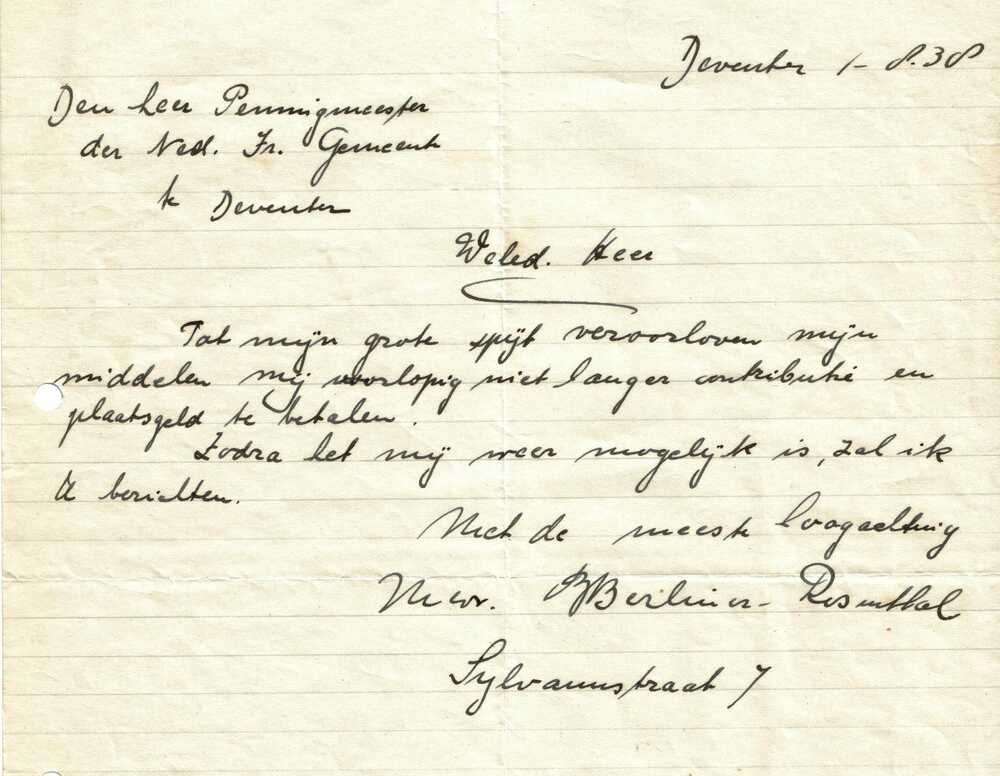 Deventer 1-8.38
Den heer Penningmeester
der Ned. Isr. Gemeente
te Deventer
Weled. Heer
Tot mijn grote spijt veroorloven mijn
middelen mij voorlopig niet langer contributie en
plaatsgeld te betalen.
Zodra het mij weer mogelijk is, zal ik
U berichten.
Met de meeste hoogachting
Mevr. B Berliner-Rosenthal
Sylvanusstraat 7